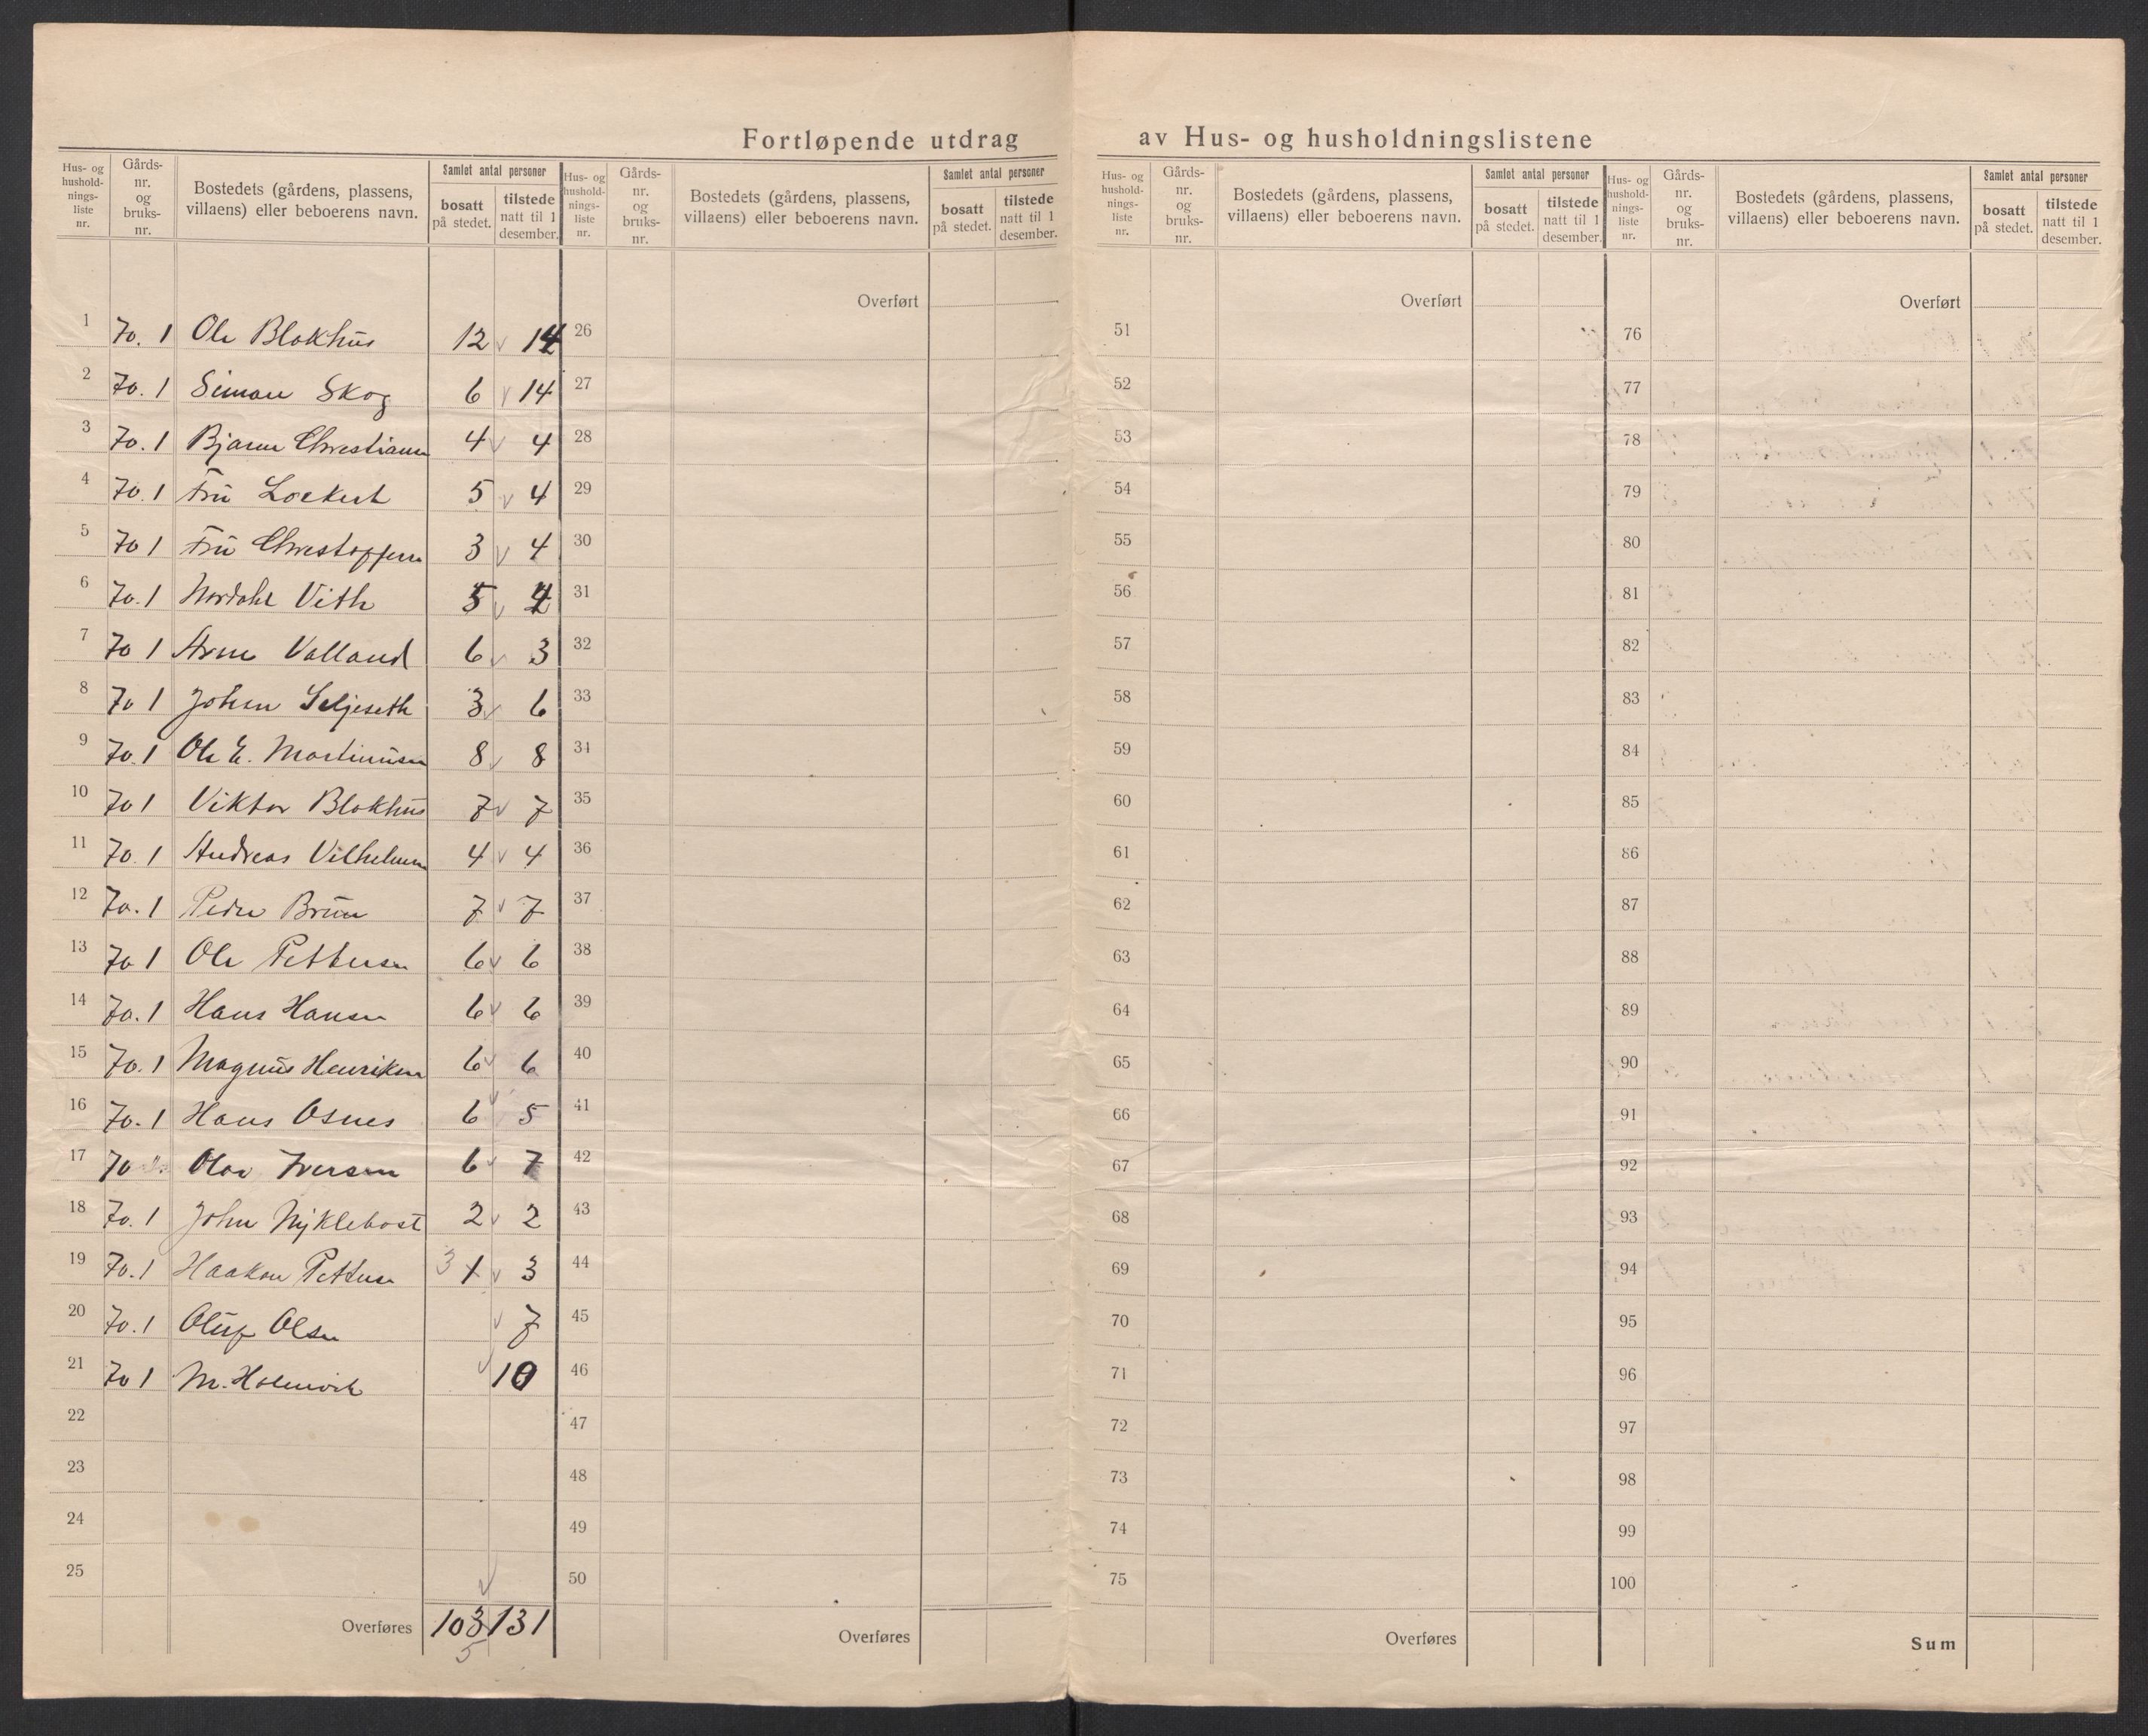 Fortløpende utdrag av Hus- og husholdningslistene
Hus- og hushold-nings-liste nr. Gårds-nr. og bruks-nr. Bostedets (gårdens, plassens, villaens) eller beboerens navn. Samlet antal personer bosatt på stedet. tilstede natt til 1 desember.
1 70. 1 Ole Blokhus 12 14
2 70. 1 Simon Skog 6 14
3 70. 1 Bjarne 4 4
4 70. 1 Fru Lockert 5 4
5 70 1 Fru 3 4
6 70. 1 Nordahl Vith 5 4
7 70 1 Arne Valland 6 3
8 70 1 Johan Seljeseth 3 6
9 70. 1 Ole E. Martinusen 8 8
10 70 1 Viktor Blokhus 7 7
11 70. 1 Andreas 4 4
12 70. 1 Peder Brun 7 7
13 70 1 Ole Pettersen 6 6
14 70. 1 Hans Hansen 6 6
15 70. 1 Magnus Henriksen 6 6
16 70. 1 Hans Osnes 6 5
17 70 Olav Iversen 6 7
18 70. 1 John Nyklebost 2 2
19 70. 1 Haakon Pettersen 3 1 3
20 70. 1 Oluf Olsen 7
21 70 1 M. Holmvik 10
22
23
24
25
Overføres 103 131
5
Hus- og hushold-nings-liste nr. Gårds-nr. og bruks-nr. Bostedets (gårdens, plassens, villaens) eller beboerens navn. Samlet antal personer bosatt på stedet. tilstede natt til 1 desember.
Overført
26
27
28
29
30
31
32
33
34
35
36
37
38
39
40
41
42
43
44
45
46
47
48
49
50
Overføres
Hus- og hushold-nings-liste nr. Gårds-nr. og bruks-nr. Bostedets (gårdens, plassens, villaens) eller beboerens navn. Samlet antal personer bosatt på stedet. tilstede natt til 1 desember.
Overført
51
52
53
54
55
56
57
58
59
60
61
62
63
64
65
66
67
68
69
70
71
72
73
74
75
Overføres
Hus- og hushold-nings-liste nr. Gårds-nr. og bruks-nr. Bostedets (gårdens, plassens, villaens) eller beboerens navn. Samlet antal personer bosatt på stedet. tilstede natt til 1 desember.
Overført
76
77
78
79
80
81
82
83
84
85
86
87
88
89
90
91
92
93
94
95
96
97
98
99
100
Sum